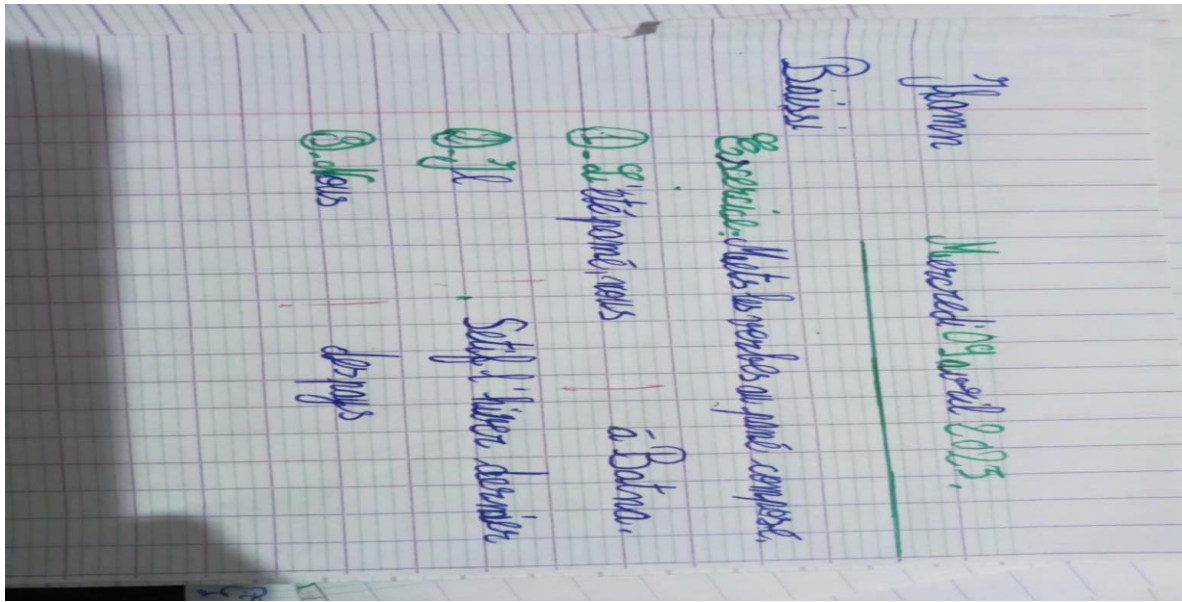 Mercredi 09 avril 2025.
Exercice: Mets les verbes au passé composé.
①- L'été passé, nous à Batna.
②- Il Setif l'hiver dernier
③- Nous des pays